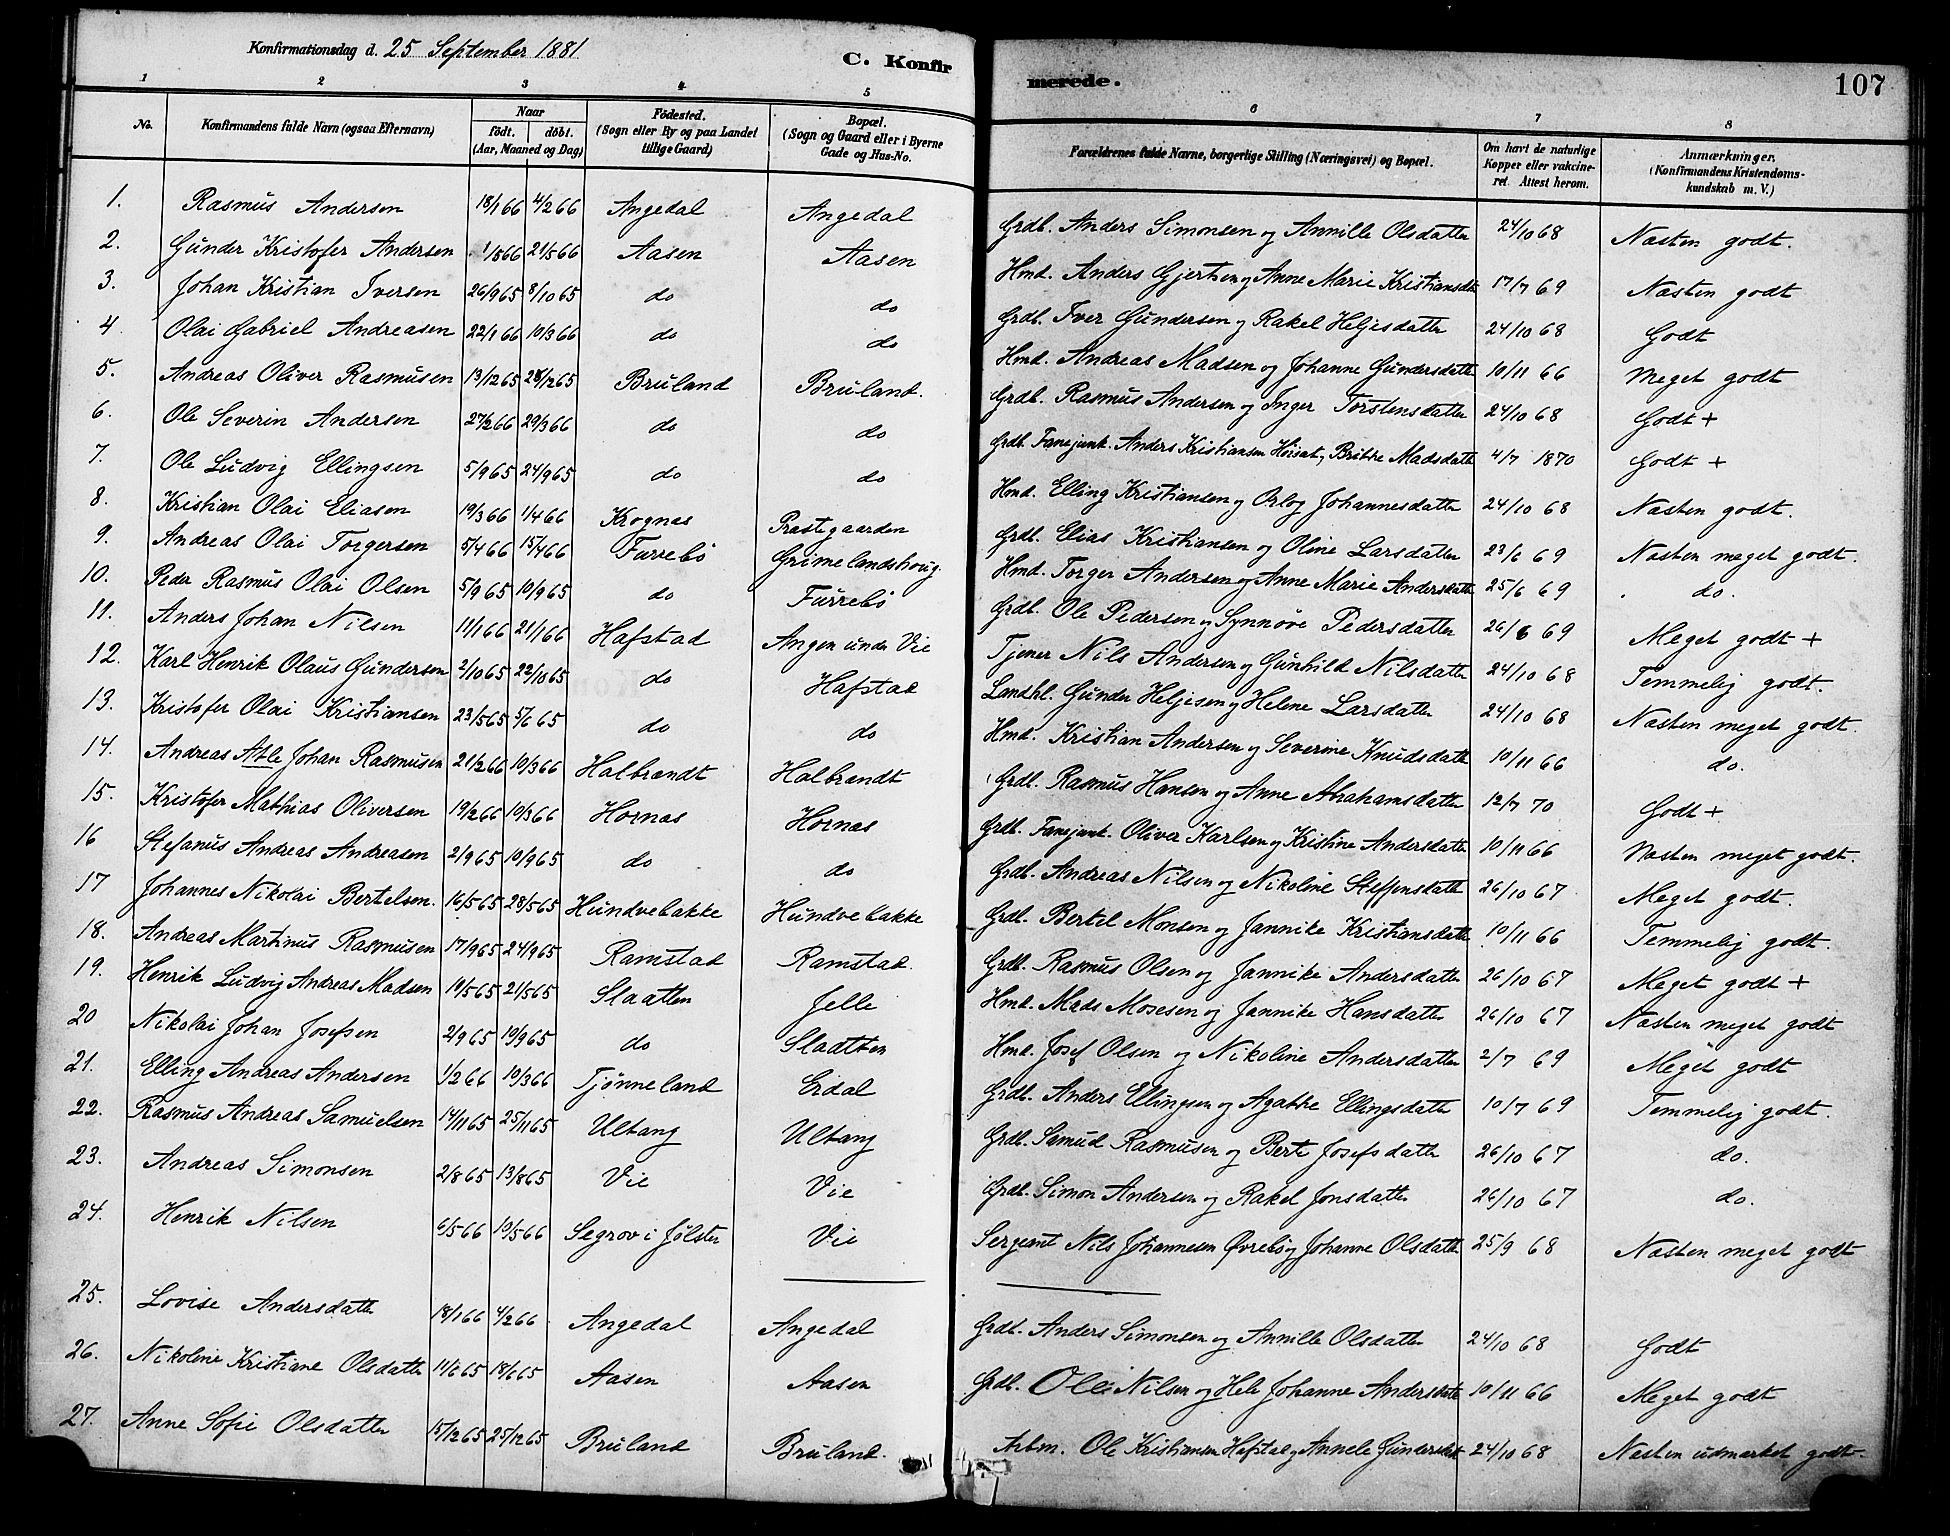 Konfirmationsdag d. 25 September 1881
C. Konfirmerede.
107
1 2 3 4 5 6 7 8
No. Konfirmandens fulde Navn (ogsaa Efternavn) Naar födt. döbt. (Aar, Maaned og Dag) Födested. (Sogn eller By og paa Landet tillige Gaard) Bopæl. (Sogn og Gaard eller i Byerne Gade og Hus-No. Forældrenes fulde Navne, borgerlige Stilling (Næringsvei) og Bopæl. Om havt de naturlige Kopper eller vakcineret. Attest herom. Anmærkninger. (Konfirmandens Kristendomskundskab m. V.)
1. Rasmus Andersen 18/1 66 4/2 66 Angedal Angedal Grdb. Anders Simonsen og Annille Olsdatter 24/10 68 Næsten godt.
2. Gunder Kristofer Andersen 1/5 66 21/5 66 Aasen Aasen Hmd. Anders Gjertsen og Anne Marie Kristiansdtr 17/7 69 Næsten godt
3. Johan Kristian Iversen 26/9 65 8/10 65 do do Grdb. Iver Gundersen og Rakel Heljesdatter 24/10 68 Godt
4. Olai Gabriel Andreasen 22/1 66 10/3 66 do do Hmd. Andreas Madsen og Johanne Gundersdatter 10/11 66 Meget godt
5. Andreas Oliver Rasmusen 13/12 65 28/12 65 Bruland Bruland. Grdb. Rasmus Andersen og Inger Torstensdatter 24/10 68 Godt +
6. Ole Severin Andersen 27/2 66 29/3 66 do do Grdb. Fanejunk. Anders Kristiansen Brithe Madsdatter 4/7 1870 Godt +
7. Ole Ludvig Ellingsen 5/9 65 24/9 65 do do Hmd. Elling Kristiansen og Orlog Johannesdatter 24/10 68 Næsten godt.
8. Kristian Olai Eliasen 19/3 66 1/4 66 Krognæs Præstegaarden Grdb. Elias Kristiansen og Oline Larsdatter 23/6 69 Næsten meget godt.
9. Andreas Olai Torgersen 5/4 66 15/4 66 Furrebö Grimelandshoug. Hmd. Torger Andersen og Anne Marie Andersdatter 25/6 69 do.
10. Peder Rasmus Olai Olsen 5/9 65 10/9 65 do Furrebö Grdb. Ole Pedersen og Synnöve Pedersdatter 26/6 69 Meget godt +
11. Anders Johan Nilsen 11/1 66 21/1 66 Hafstad Angen under Vie Tjener Nils Andersen og Gunhild Nilsdatter 24/10 68 Temmelig godt.
12. Karl Henrik Olaus Gundersen 2/10 65 22/10 65 do Hafstad Landhl. Gunder Heljesen og Helene Larsdatter 24/10 68 Næsten meget godt.
13. Kristofer Olai Kristiansen 23/5 65 5/6 65 do do Hmd. Kristian Andersen og Severine Knudsdatter 10/11 66 do.
14. Andreas Atle Johan Rasmusen 21/2 66 10/3 66 Halbrændt Halbrændt Grdb. Rasmus Hansen og Anne Abrahamsdatter 12/7 70 Godt +
15. Kristofer Mathias Oliversen 19/2 66 10/3 66 Hornæs Hornæs Grdb. Fanejunk. Oliver Karlsen og Kristine Andersdatter 10/11 66 Næsten meget godt.
16 Stefanus Andreas Andreasen 2/9 65 10/9 65 do do Grdb. Andreas Nilsen og Nikoline Steffensdatter 26/10 67 Meget godt.
17 Johannes Nikolai Bertelsen. 16/5 65 28/5 65 Hundvebakke Hundvebakke Grdb. Bertel Monsen og Jannike Kristiansdatter 10/11 66 Temmelig godt.
18. Andreas Martinus Rasmusen 17/9 65 24/9 65 Ramstad Ramstad. Grdb. Rasmus Olsen og Jannike Andersdatter 26/10 67 Meget godt +
19. Henrik Ludvig Andreas Madsen 19/5 65 21/5 65 Slaatten Jelle Hmd. Mads Mosesen og Jannike Hansdatter 26/10 67 Næsten meget godt
20 Nikolai Johan Josefsen 2/9 65 19/9 65 do Slaatten Hmd. Josef Olsen og Nikoline Andersdatter 2/7 69 Meget godt
21. Elling Andreas Andersen 1/2 66 10/3 66 Tjønneland Erdal Grdb. Anders Ellingsen og Agathe Ellingsdatter 10/7 69 Temmelig godt.
22. Rasmus Andreas Samuelsen 14/11 65 25/11 65 Ultang Ultang Grdb. Samuel Rasmusen og Berte Josefsdatter 26/10 67 do.
23. Andreas Simonsen 2/8 65 13/8 65 Vie Vie Grdb. Simon Andersen og Rakel Jonsdatter 26/10 67 do.
24. Henrik Nilsen 6/5 66 10/5 66 Segrov i Jølster Vie Sergeant Nils Johannesen Øvrebø og Johanne Olsdatter 25/9 68 Næsten meget godt
25. Lovise Andersdatter 18/1 66 4/2 66 Angedal Angedal Grdb. Anders Simonsen og Annille Olsdatter 24/10 68 Godt
26. Nikoline Kristiane Olsdatter 11/6 65 18/6 65 Aasen Aasen Grdb. Ole Nilsen og Hele Johanne Andersdatter 10/11 66 Meget godt
27. Anne Sofie Olsdatter 15/12 65 25/12 65 Bruland Bruland. Arbm. Ole Kristiansen Hafstad og Annele Gundersdatter 24/10 68 Næsten udmærket godt.